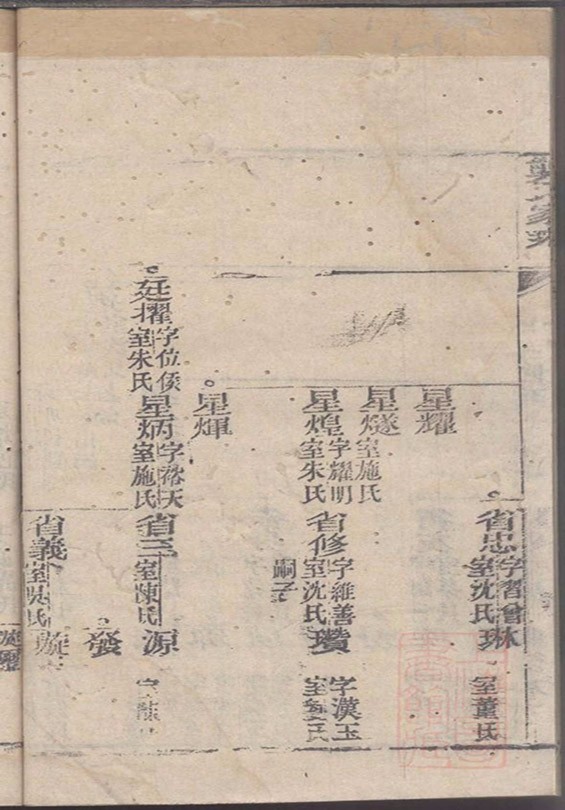 省忠 字習曾 室沈氏
琳 室董氏
星耀
星燧 室施氏
星煌 字耀明 室朱氏
省修 字維善 室沈氏
嗣子
瓚 字漢玉
星輝
廷擢 字位侯 室朱氏
星炳 字裕天 室施氏
省三 室陳氏
源
發
省義